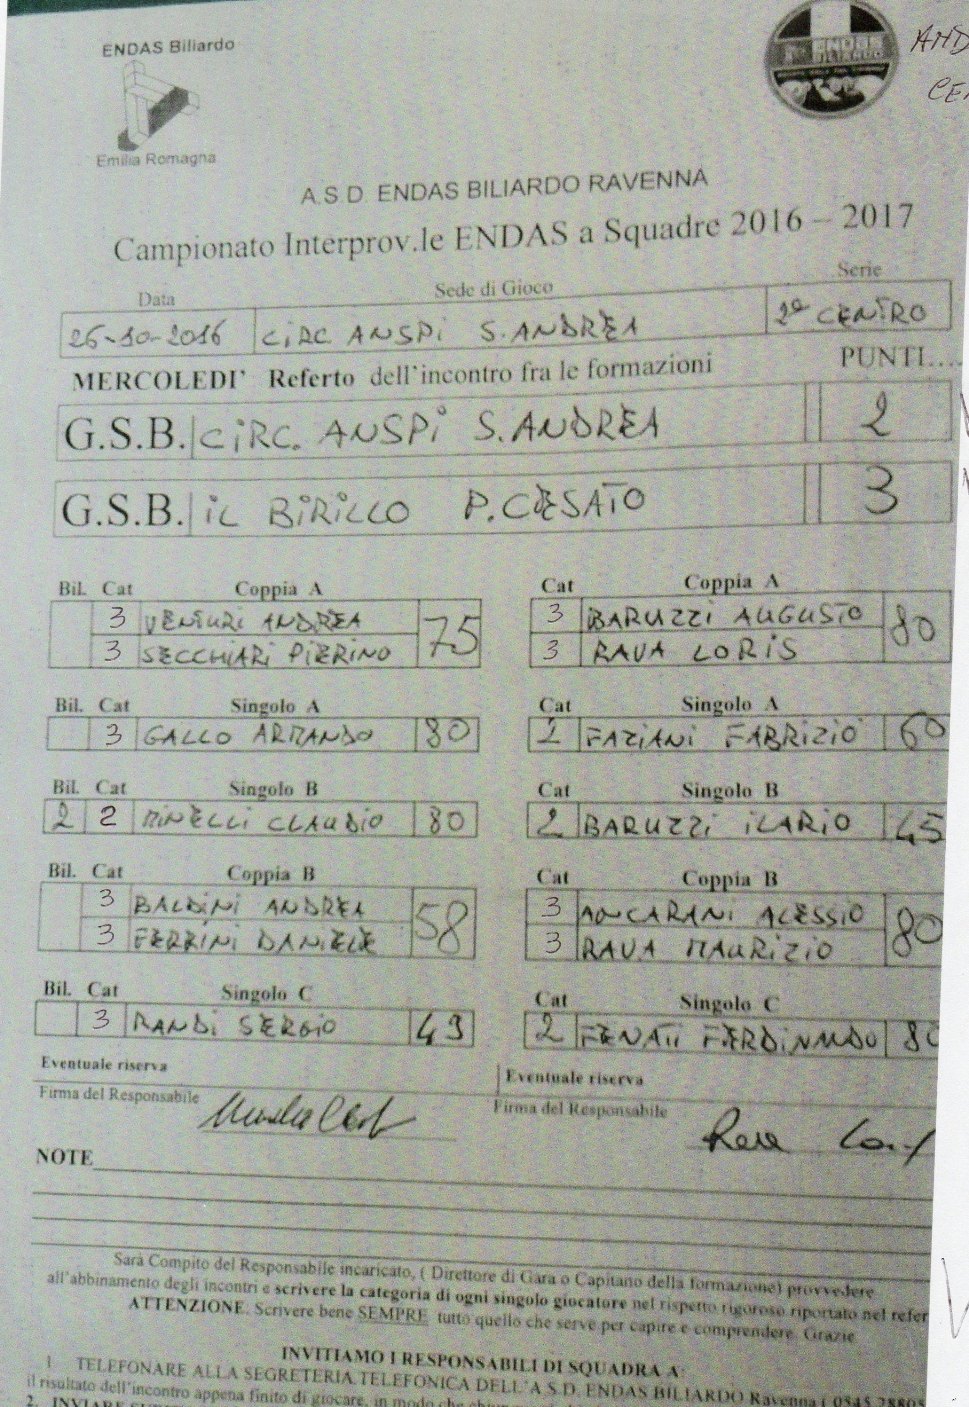 ENDAS Biliardo
Emilia Romagna
ENDAS
BILIARDO
A.S.D. ENDAS BILIARDO RAVENNA
Campionato Interprov.le ENDAS a Squadre 2016 – 2017
Data Sede di Gioco Serie
26-10-2016 CIRC ANSPI S. ANDREA 2ª CENTRO
MERCOLEDI' Referto dell'incontro fra le formazioni PUNTI....
G.S.B. CIRC. ANSPI S. ANDREA 2
G.S.B. IL BIRILLO P. CESATO 3
Bil. Cat Coppia A Cat Coppia A
3 VENTURI ANDREA 75 3 BARUZZI AUGUSTO 80
3 SECCHIARI PIERINO 3 RAVA LORIS
Bil. Cat Singolo A Cat Singolo A
3 GALLO ARMANDO 80 2 FAZIANI FABRIZIO 60
Bil. Cat Singolo B Cat Singolo B
2 2 MINELLI CLAUDIO 80 2 BARUZZI ILARIO 45
Bil. Cat Coppia B Cat Coppia B
3 BALDINI ANDREA 58 3 ALESSIO 80
3 FERRINI DANIELE 3 RAVA MAURIZIO
Bil. Cat Singolo C Cat Singolo C
3 RANDI SERGIO 49 2 FENATI FERDINANDO 80
Eventuale riserva Eventuale riserva
Firma del Responsabile Firma del Responsabile
NOTE
Sarà Compito del Responsabile incaricato, ( Direttore di Gara o Capitano della formazione) provvedere
all'abbinamento degli incontri e scrivere la categoria di ogni singolo giocatore nel rispetto rigoroso riportato nel refer
ATTENZIONE. Scrivere bene SEMPRE tutto quello che serve per capire e comprendere. Grazie
INVITIAMO I RESPONSABILI DI SQUADRA A:
1 TELEFONARE ALLA SEGRETERIA TELEFONICA DELL'A.S.D. ENDAS BILIARDO Ravenna ( 0545 28805
il risultato dell'incontro appena finito di giocare, in modo che
2.